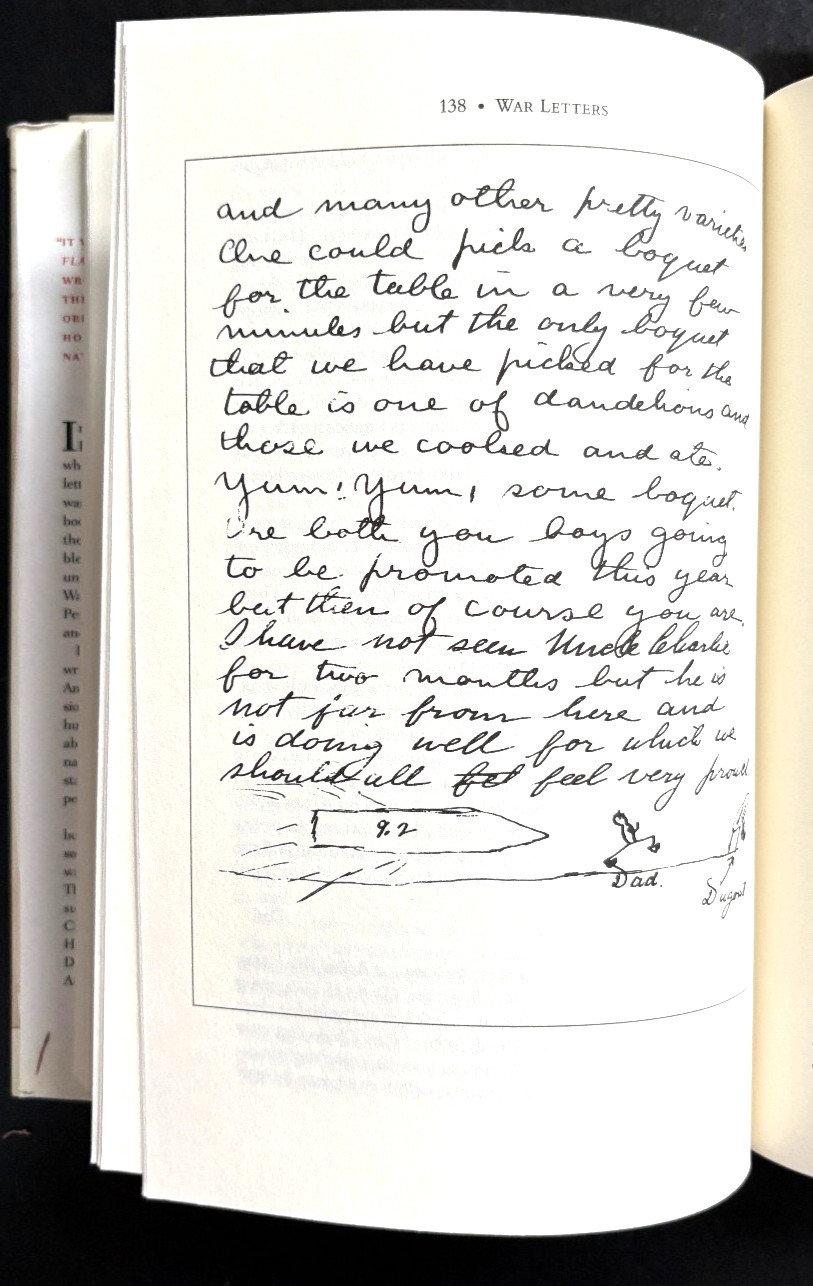 138 • WAR LETTERS
and many other pretty varieties
One could pick a boquet
for the table in a very few
minutes but the only boquet
that we have picked for the
table is one of dandelions and
those we cooked and ate.
Yum! Yum! some boquet.
Are both you boys going
to be promoted this year
but then of course you are.
I have not seen Uncle Charlie
for two months but he is
not far from here and
is doing well for which we
should all fet feel very proud
9.2
Dad.
Dugout
"IT
FLA
WR
THI
OR
HO
NA
wh
lett
wa
boo
the
ble
un
Wa
Pe
an
I
wr
An
sio
hu
ab
na
sta
pe
C
H
D
A